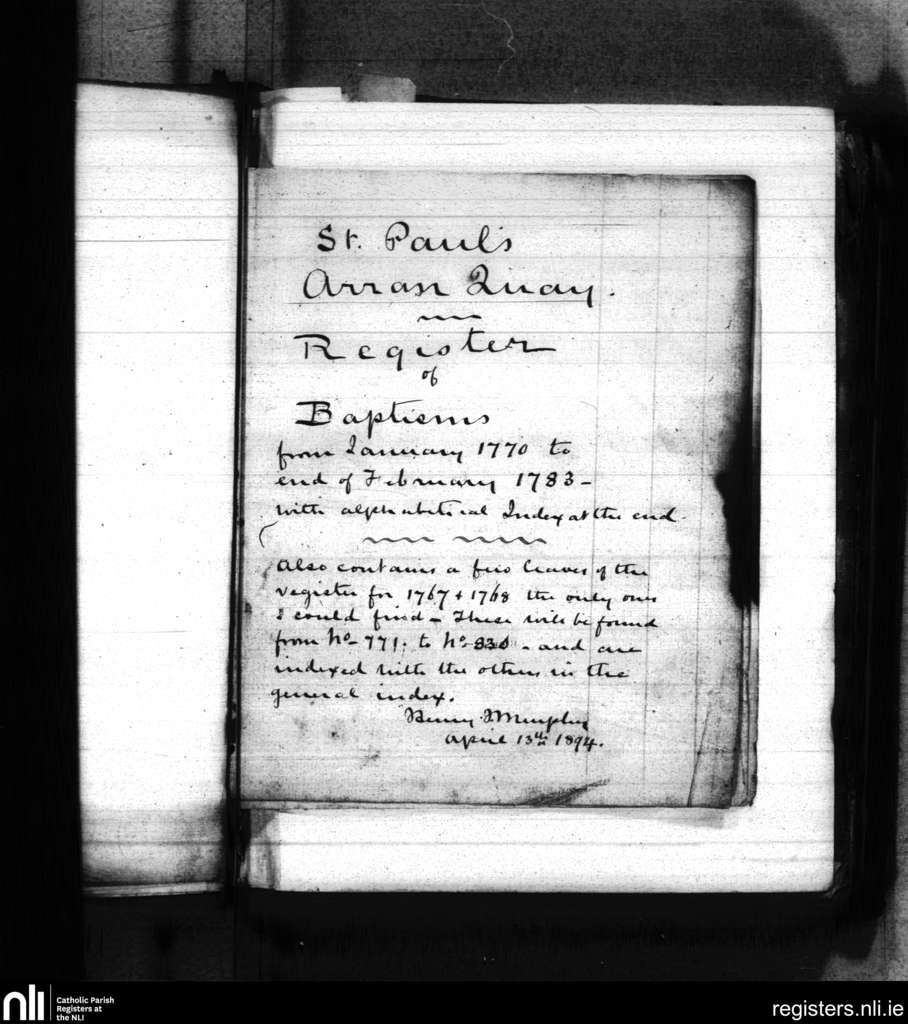 St. Paul's
Arran Quay.
Register
of
Baptisms
from January 1770 to
end of February 1783 -
with alphabetical Index at the end.
Also contains a few leaves of the
register for 1767 + 1768 the only ones
I could find - These will be found
from No- 771. to No- 830 - and are
indexed with the others in the
general index.
Henry J Murphy
April 13th 1894.
nli
Catholic Parish
Registers at
the NLI
registers.nli.ie